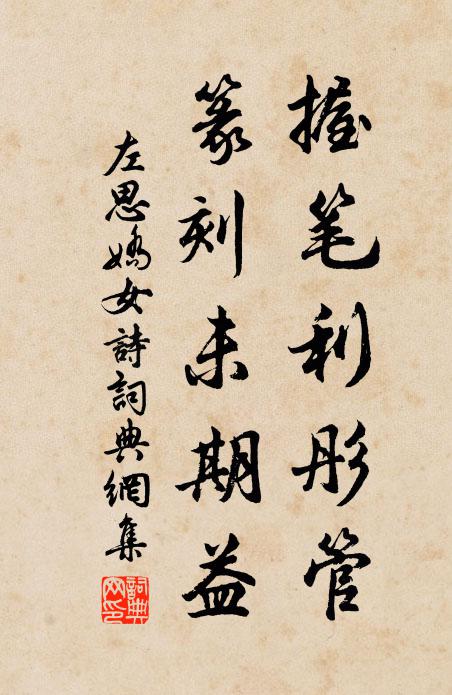 握笔利彤管
篆刻未期益
左思嬌女詩詞典網集
詞典
网印